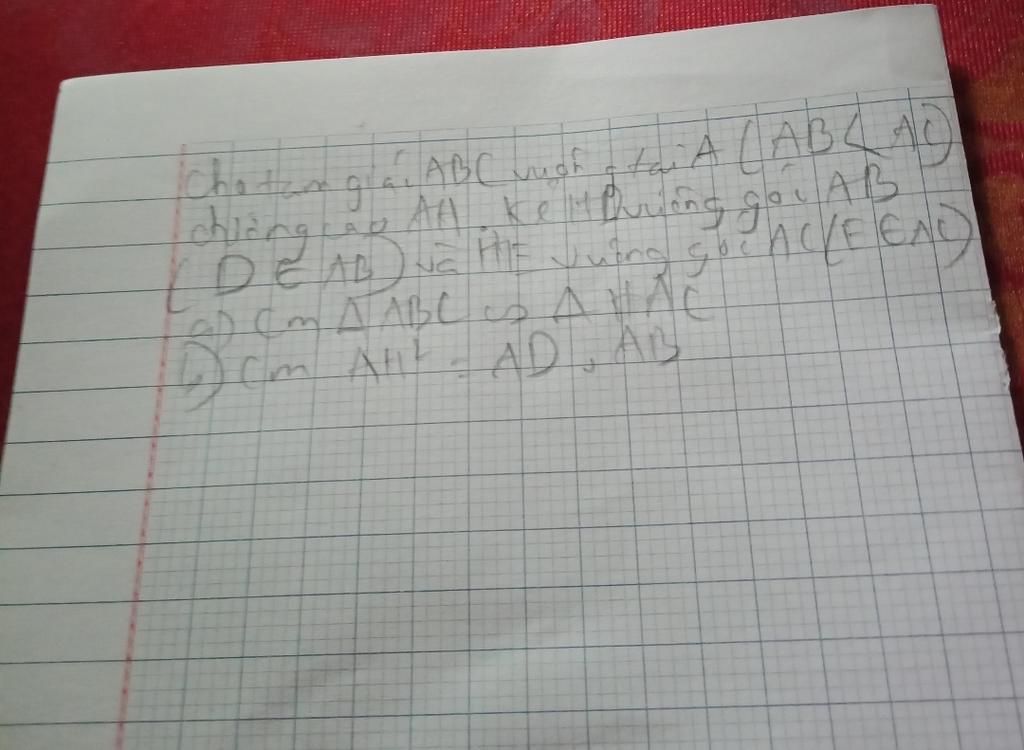 Cho tam giác ABC vuông tại A (AB < AC)
đường cao AH. Kẻ HD vuông góc AB
(D ∈ AB) và HE vuông góc AC (E ∈ AC)
a) Cm Δ ABC ∽ Δ HAC
b) Cm AH² = AD . AB